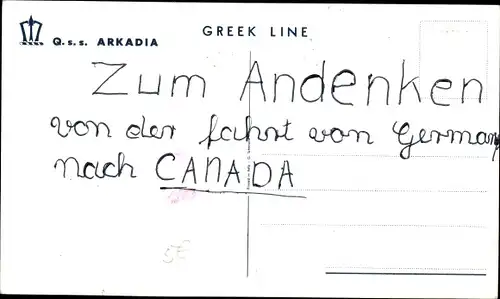 Q.s.s. ARKADIA
GREEK LINE
Zum Andenken
von der fahrt von German
nach CANADA